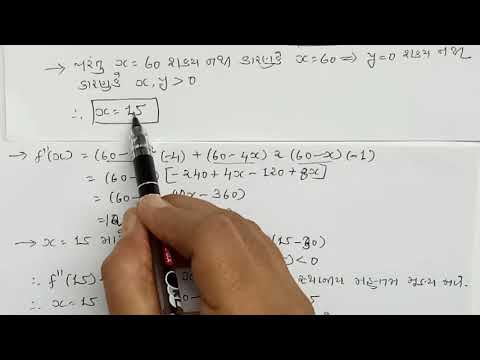 → પરંતુ x = 60 શક્ય નથી કારણકે x = 60 ⇒ y = 0 શક્ય નથી
કારણકે x, y > 0
∴ x = 15
→ f''(x) = (60 - (-4) + (60 - 4x) 2 (60 - x) (-1)
= (60 - [-240 + 4x - 120 + 8x]
= (60 - x - 360)
=
→ x = 15 (15 - 30)
< 0
∴ f''(15) મહત્તમ મૂલ્ય મળે.
∴ x = 15